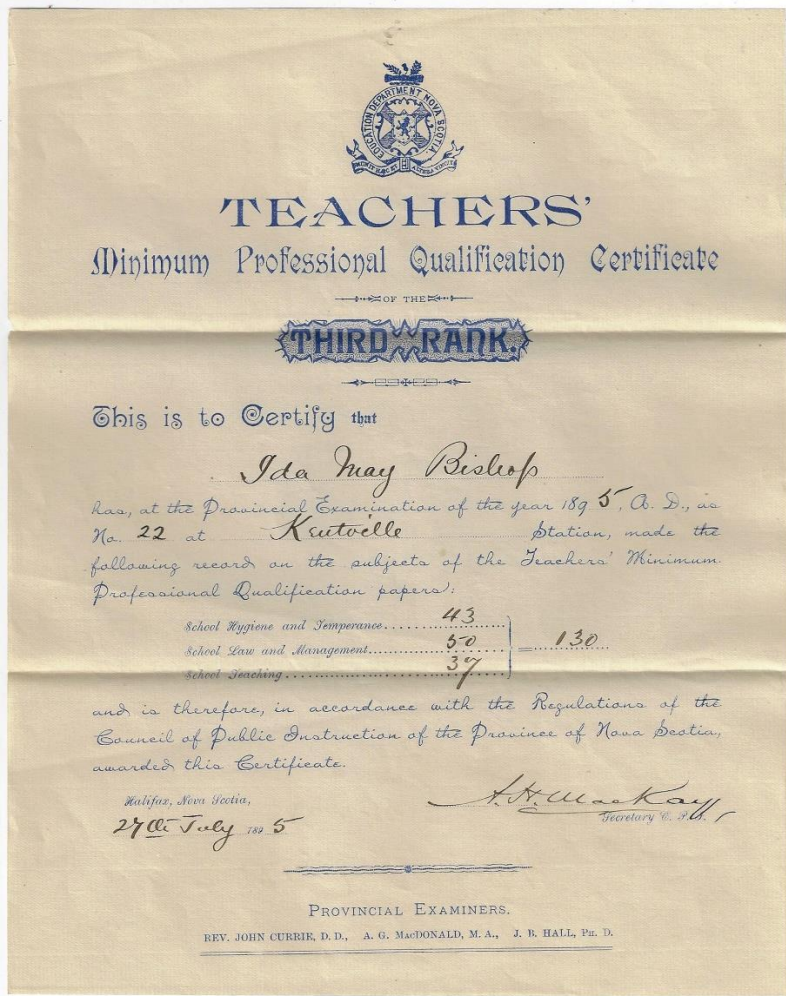 EDUCATION DEPARTMENT NOVA SCOTIA.
MUNIT HÆC ET ALTERA VINCIT
TEACHERS'
Minimum Professional Qualification Certificate
OF THE
THIRD RANK.
This is to Certify that
Ida May Bishop
has, at the Provincial Examination of the year 1895, A. D., as
No. 22 at Kentville Station, made the
following record on the subjects of the Teachers' Minimum
Professional Qualification papers:
School Hygiene and Temperance........ 43
School Law and Management........ 50 = 130
School Teaching........ 37
and is therefore, in accordance with the Regulations of the
Council of Public Instruction of the Province of Nova Scotia,
awarded this Certificate.
Halifax, Nova Scotia,
A. H. MacKay
Secretary C. P. I.
27th July 1895
PROVINCIAL EXAMINERS.
REV. JOHN CURRIE, D. D., A. G. MACDONALD, M. A., J. B. HALL, PH. D.